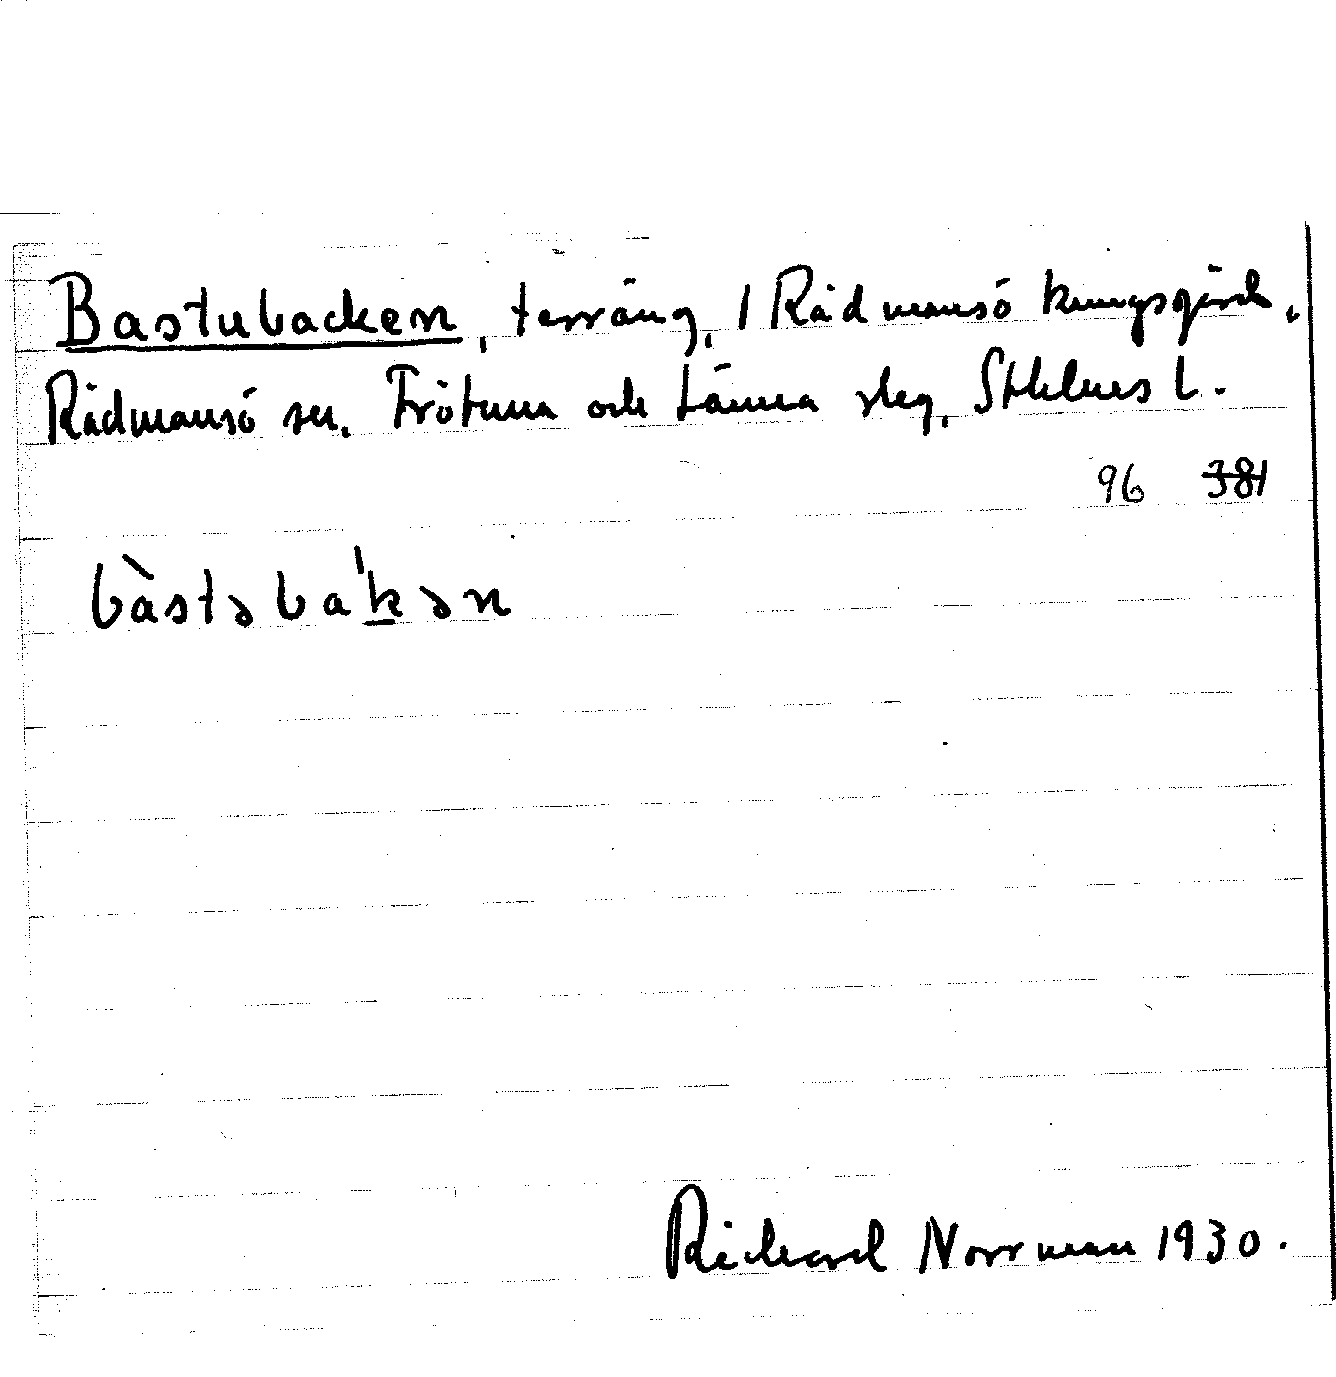 Bastubacken, terräng, 1 Rådmansö kungsgård,
Rådmansö sn. Frötuna och Länna slag, Sthlms l.
96 381
bàstəbaˈk̲ən
Richard Norrman 1930.